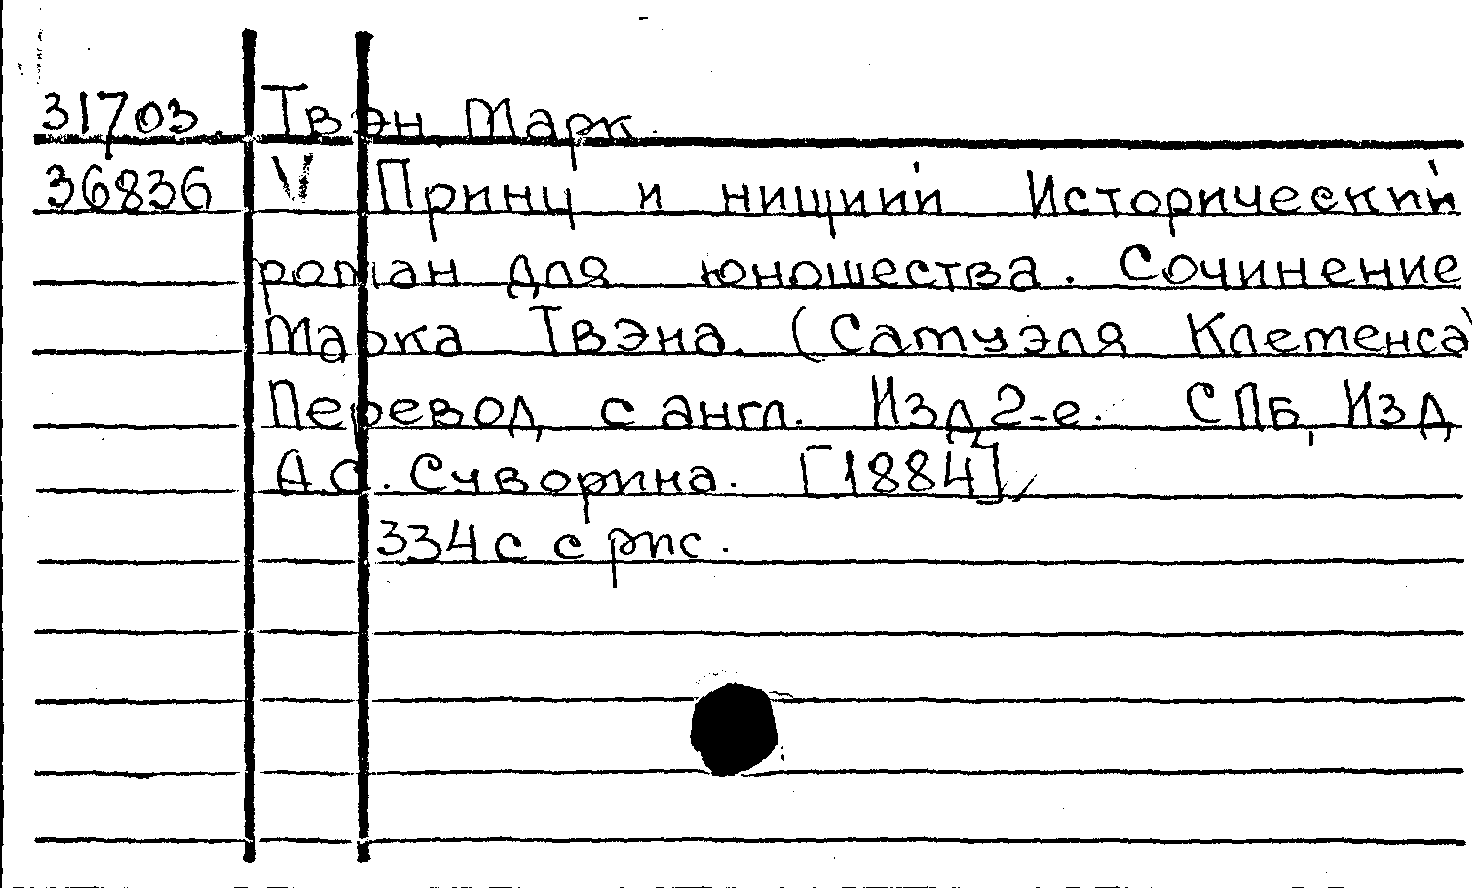 31703. Твэн Марк.
36836 V Принц и нищий Исторический
роман для юношества. Сочинение
Марка Твэна. (Самуэля Клеменса)
Перевод с англ. Изд 2-е. СПБ, Изд
А.С. Суворина. [1884],
334 с с рис.